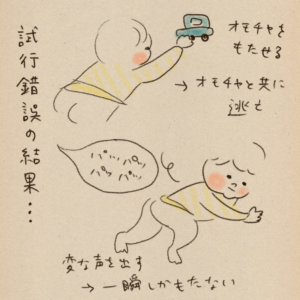 試行錯誤の結果・・・
オモチャを
もたせる
→ オモチャと共に
逃亡
パッ パッ
パッ パッ
変な声を出す
→ 一瞬しかもたない